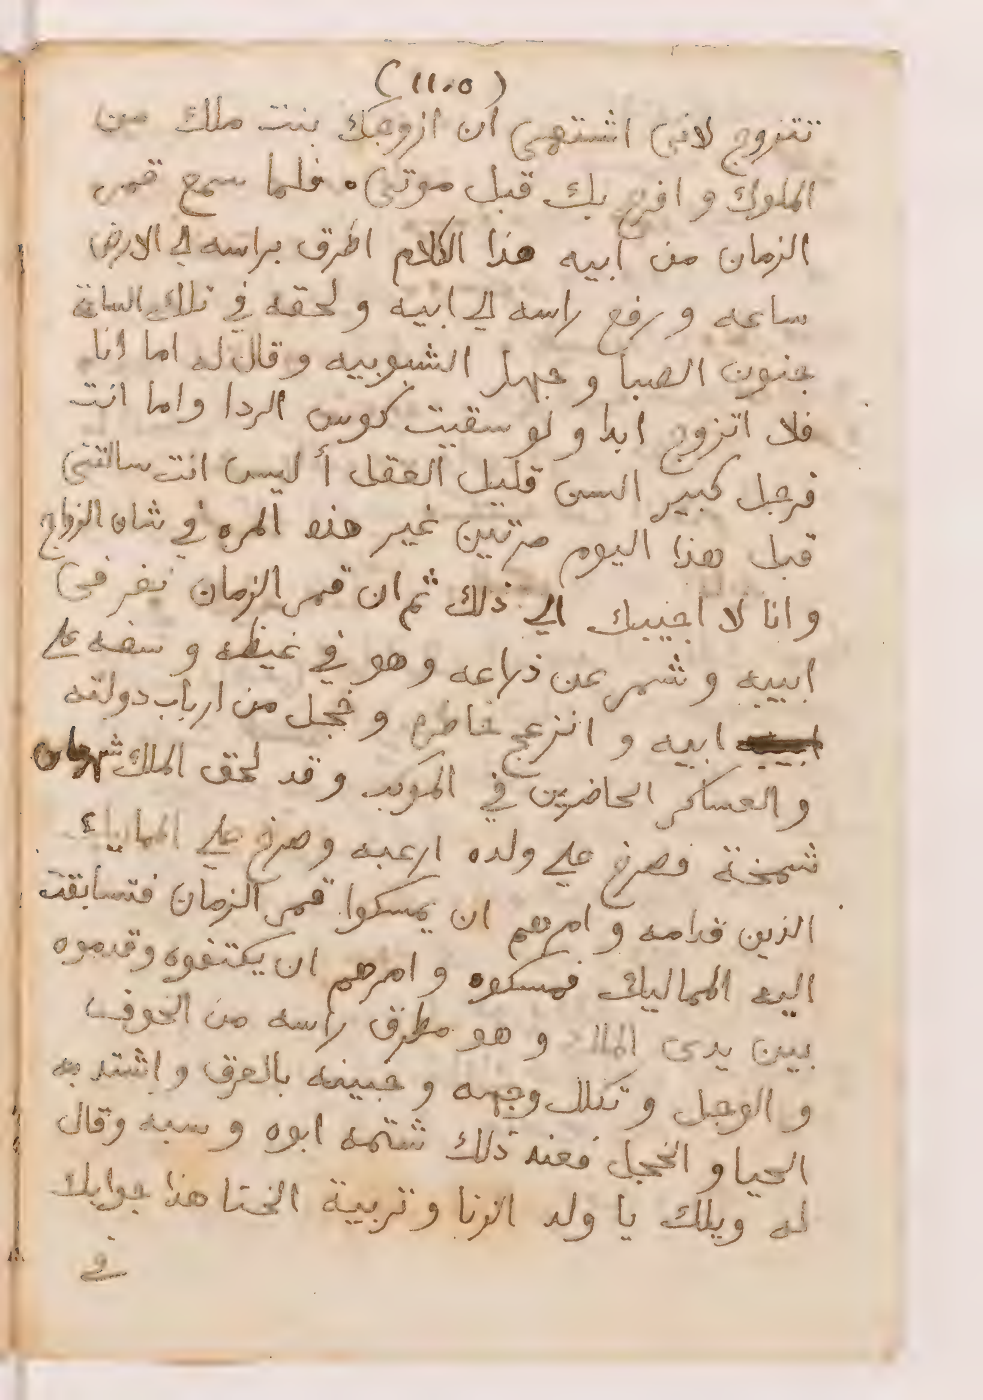 (١١٠٥)
تتزوج لاني اشتهي ان ازوجك بنت ملك من
الملوك و افرح بك قبل موتي. فلما سمع قمر
الزمان من ابيه هذا الكلام اطرق براسه الي الارض
ساعه و رفع راسه الي ابيه و لحقه في تلك الساعة
جنون الصبا و جهل الشبوبيه و قال له اما انا
فلا اتزوج ابدا و لو سقيت كوس الردا واما انت
فرجل كبير السن قليل العقل أ ليس انت سالتني
قبل هذا اليوم مرتين غير هذه المره في شان الزواج
و انا لا اجيبك الي ذلك ثم ان قمر الزمان نفر في
ابيه و شمر عن ذراعه و هو في غيظه و سفه علي
ابيه و انزعج خاطره و خجل من ارباب دولته
و العساكر الحاضرين في الموكب و قد لحق الملك شهرمان
شمخة فصرخ علي ولده ارعبه وصرخ علي المماليك
الذين قدامه و امرهم ان يمسكوا قمر الزمان فتسابقت
اليه المماليك فمسكوه و امرهم ان يكتفوه وقدموه
بين يدي الملك و هو مطرق راسه من الخوف
و الوجل و تكلل وجهه و جبينه بالعرق و اشتد به
الحيا و الخجل فعند ذلك شتمه ابوه و سبه وقال
له ويلك يا ولد الزنا و تربية الخنا هذا جوابك